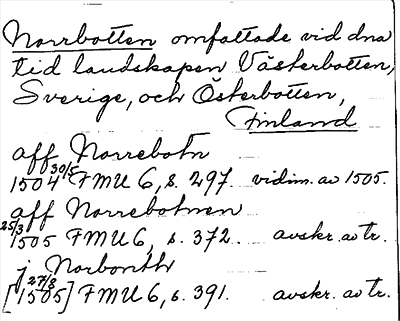 Norrbotten omfattade vid dna
tid landskapen Västerbotten,
Sverige, och Österbotten,
Finland
aff Norrebotn
1504 30/5 FMU 6, s. 297. vidim. av 1505.
aff Norrebotnen
25/3 1505 FMU 6, s. 372. avskr. av tr.
j Norbonth
[1505] 27/8 FMU 6, s. 391. avskr. av tr.